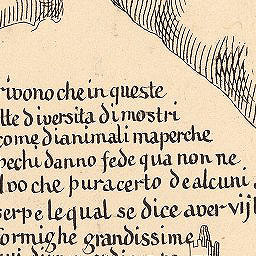 rivono che in queste
lte diversita di mostri
come di animali ma perche
pechi danno fede qua non ne
lvo che pura certo de alcuni
serpe le qual se dice aver vij
formighe grandissime